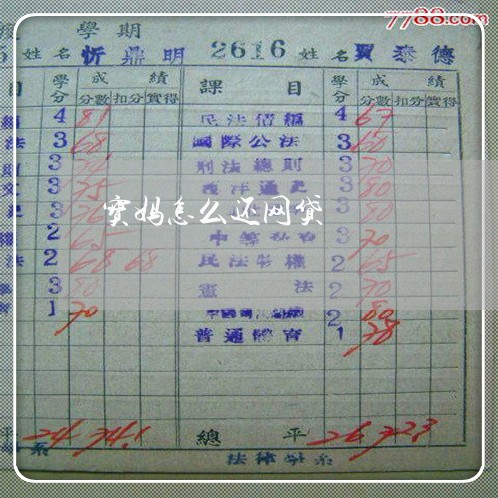 7788.com
學期
姓名 忻鼎明 2616 姓名 賈泰德
目 學分 成績 課目 學分 成績
分數 扣分 實得 分數 扣分 實得
4 81 民法債編 4 67
法 3 68 國際公法 3 60
3 刑法總則 3 70
3 75 西洋通史 3 80
3 76 3 80
2 65 3 70
法 2 68 68 民法物權 2 65
3 80 憲法 2 70
育 1 70 2 80
普通體育 1 78
寶媽怎么还网贷
平 24 74.1 總平 26 72.3
系 法律學系